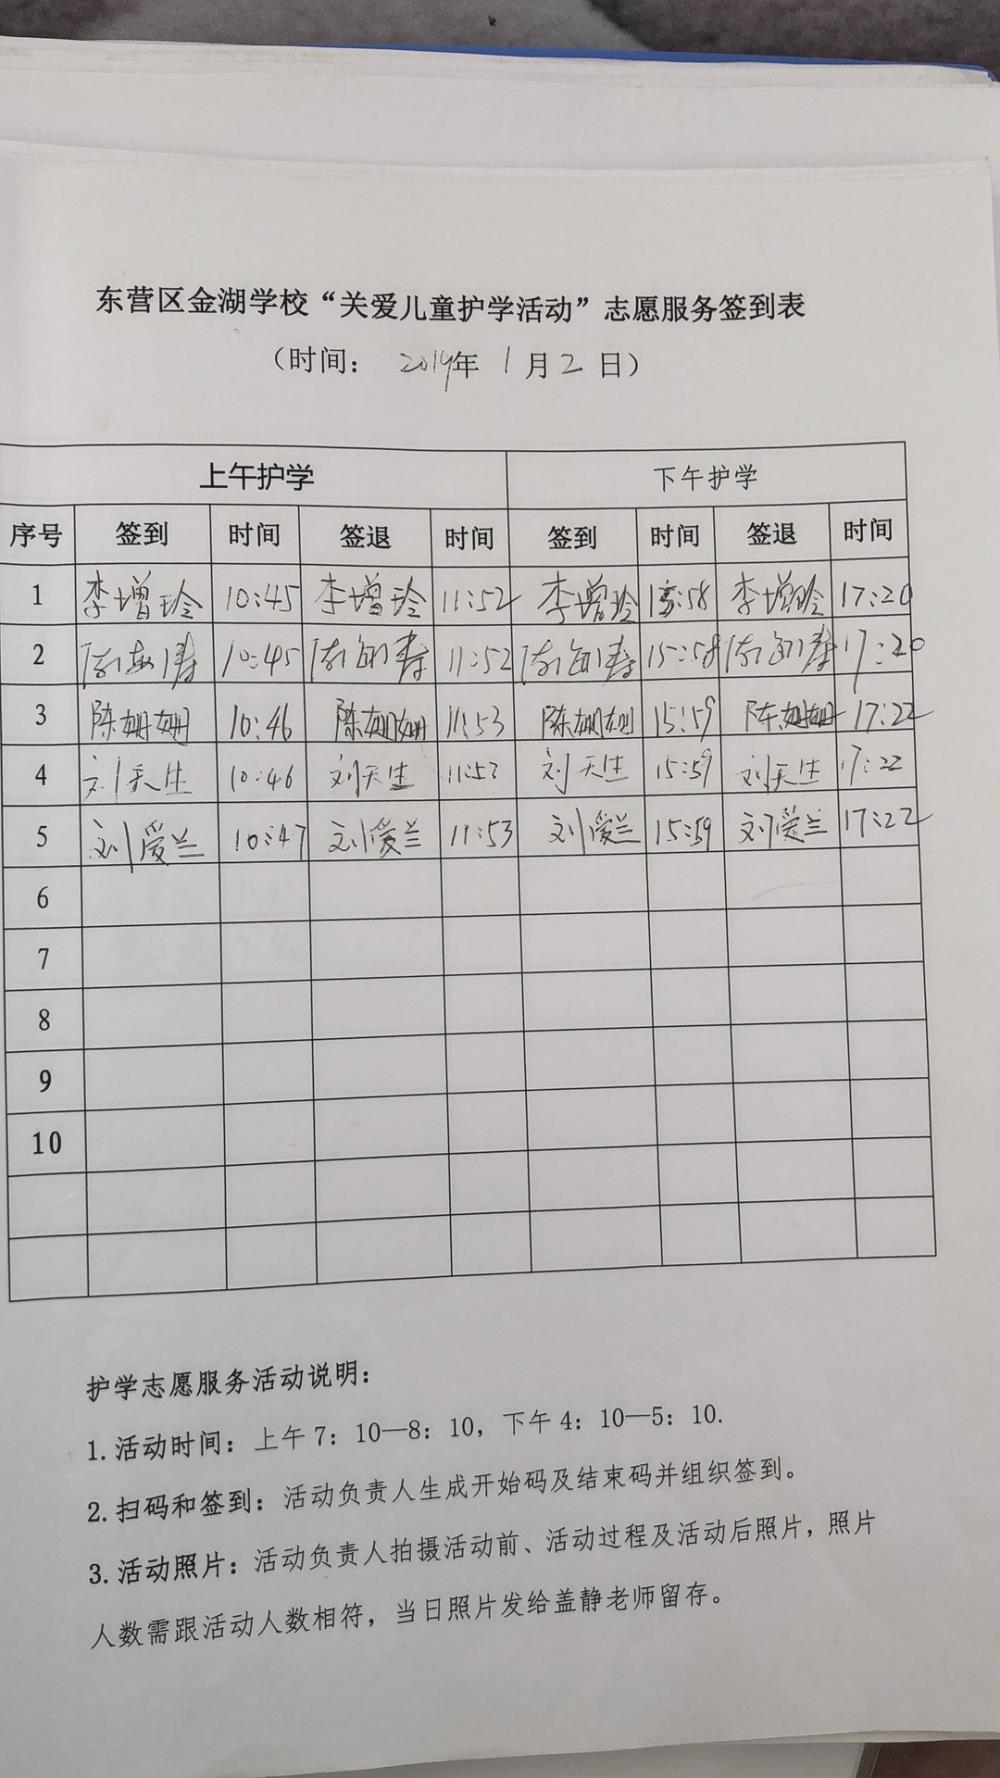 东营区金湖学校“关爱儿童护学活动”志愿服务签到表
（时间： 2019年 1 月 2 日）
上午护学 下午护学
序号 签到 时间 签退 时间 签到 时间 签退 时间
1 李增玲 10:45 李增玲 11:52 李增玲 15:58 李增玲 17:20
2 10:45 11:52 15:58 17:20
3 陈姗姗 10:46 陈姗姗 11:53 陈姗姗 15:59 陈姗姗 17:22
4 刘天生 10:46 刘天生 11:53 刘天生 15:59 刘天生 17:22
5 刘爱兰 10:47 刘爱兰 11:53 刘爱兰 15:59 刘爱兰 17:22
6
7
8
9
10
护学志愿服务活动说明：
1. 活动时间：上午 7：10—8：10，下午 4：10—5：10.
2. 扫码和签到：活动负责人生成开始码及结束码并组织签到。
3. 活动照片：活动负责人拍摄活动前、活动过程及活动后照片，照片
人数需跟活动人数相符，当日照片发给盖静老师留存。